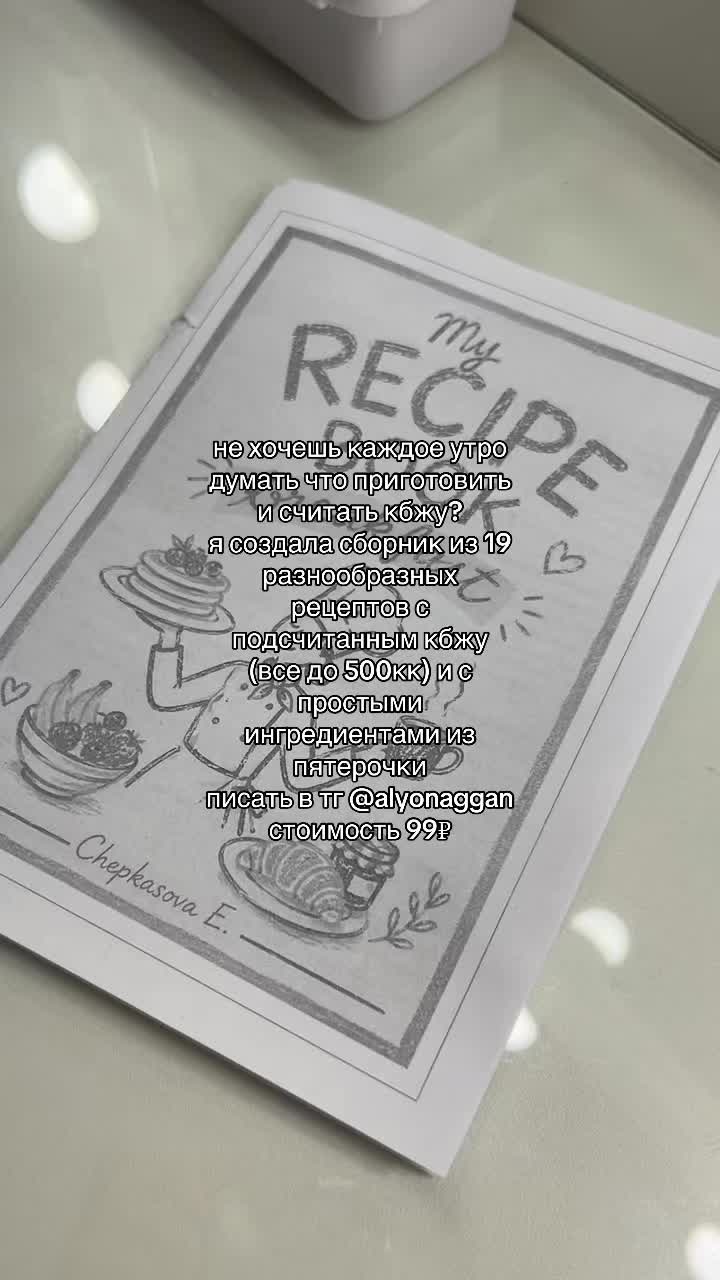 My
RECIPE
BOOK
не хочешь каждое утро
думать что приготовить
и считать кбжу?
я создала сборник из 19
разнообразных
рецептов с
подсчитанным кбжу
(все до 500кк) и с
простыми
ингредиентами из
пятерочки
писать в тг @alyonaggan
стоимость 99₽
Chepkasova E.